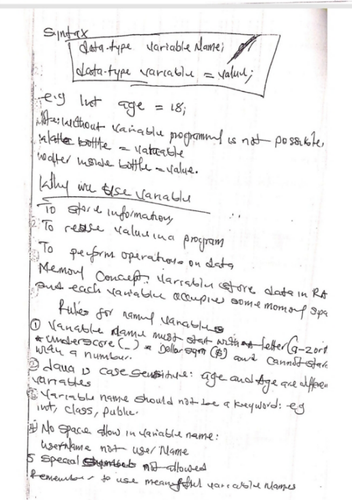 Syntax
data-type variable Name;
data-type variable = value;
e.g Int age = 18;
Note: without variable programmng is not possible.
Water bottle = variable
water inside bottle = value.
Why we use Variable
To store information
To reuse value in a program
To perform operations on data
Memory Concept: variables store data in RA
and each variable occupies some memory spa
Rules for naming Variables
① Variable name must start with letter (a-z or
underscore (_) Dollar sign ($) and Cannot start
with a number.
② Java is case sensitive: age and Age are differen
variables
③ Variable name should not be a keyword: eg
int, class, public
④ No space allow in variable name:
username not user Name
5 special symbols not allowed
Remember to use meaningful variable names